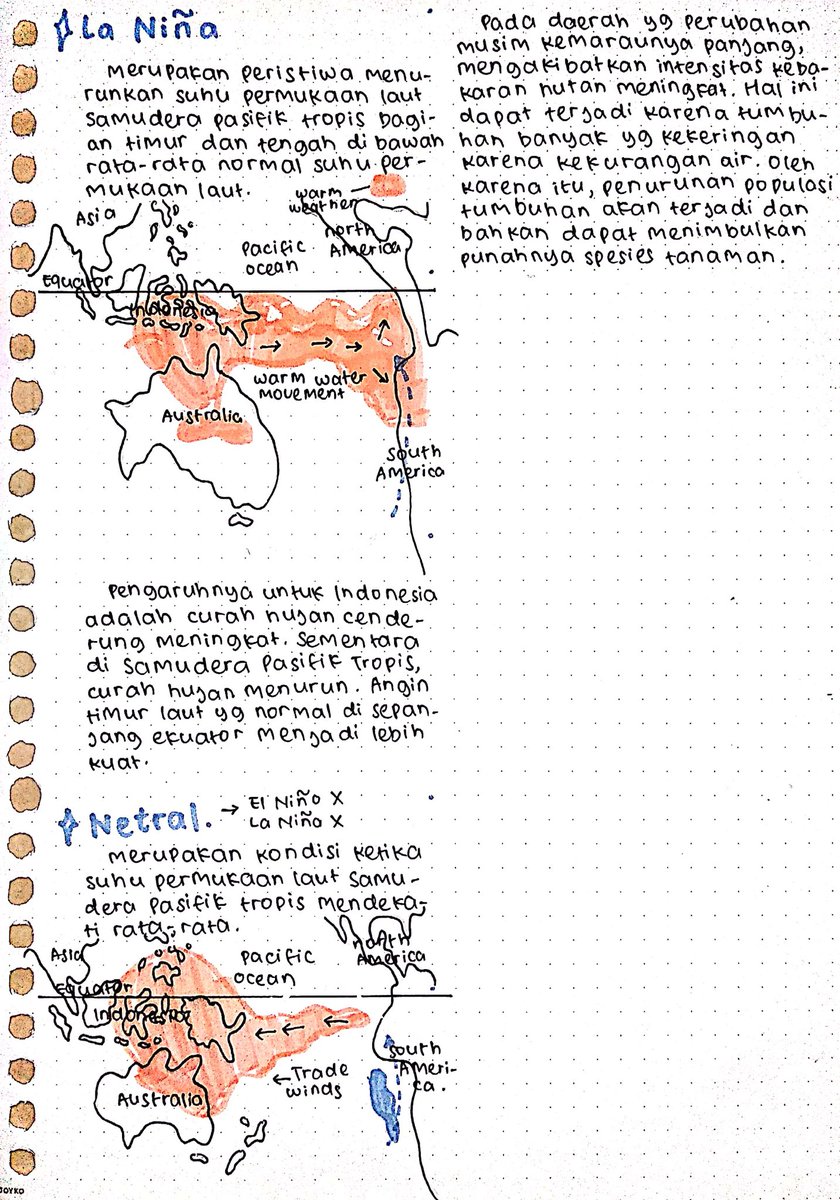 La Niña
Merupakan peristiwa menu-
runkan suhu permukaan laut
Samudera pasifik tropis bagi-
an timur dan tengah di bawah
rata-rata normal suhu per-
mukaan laut.
warm
weather
Asia
north
America
Pacific
ocean
Equator
Indonesia
warm water
movement
Australia
South
America
Pengaruhnya untuk Indonesia
adalah curah hujan cende-
rung meningkat. Sementara
di Samudera Pasifik Tropis,
curah hujan menurun. Angin
timur laut yg normal di sepan-
jang ekuator menjadi lebih
kuat.
Netral. → El Niño X
La Niña X
Merupakan kondisi ketika
suhu permukaan laut Samu-
dera pasifik tropis mendeka-
ti rata-rata.
Asia
Pacific
ocean
north
America
Equator
Indonesia
← Trade
winds
South
Ameri-
ca.
Australia
JOYKO
Pada daerah yg perubahan
musim kemaraunya panjang,
mengakibatkan intensitas keba-
karan hutan meningkat. Hal ini
dapat terjadi karena tumbu-
han banyak yg kekeringan
karena kekurangan air. Oleh
karena itu, penurunan populasi
tumbuhan akan terjadi dan
bahkan dapat menimbulkan
punahnya spesies tanaman.